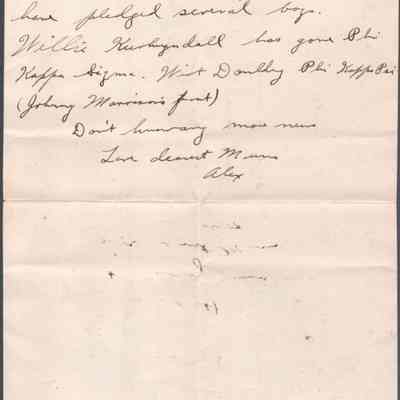 have pledged several boys.
Willie Kuykyndall has gone Phi
Kappa Sigma. Wist Phi Kappa Psi
(Johnny Morrison's frat)
Don't know any more news
Love dearest Mums
Alex